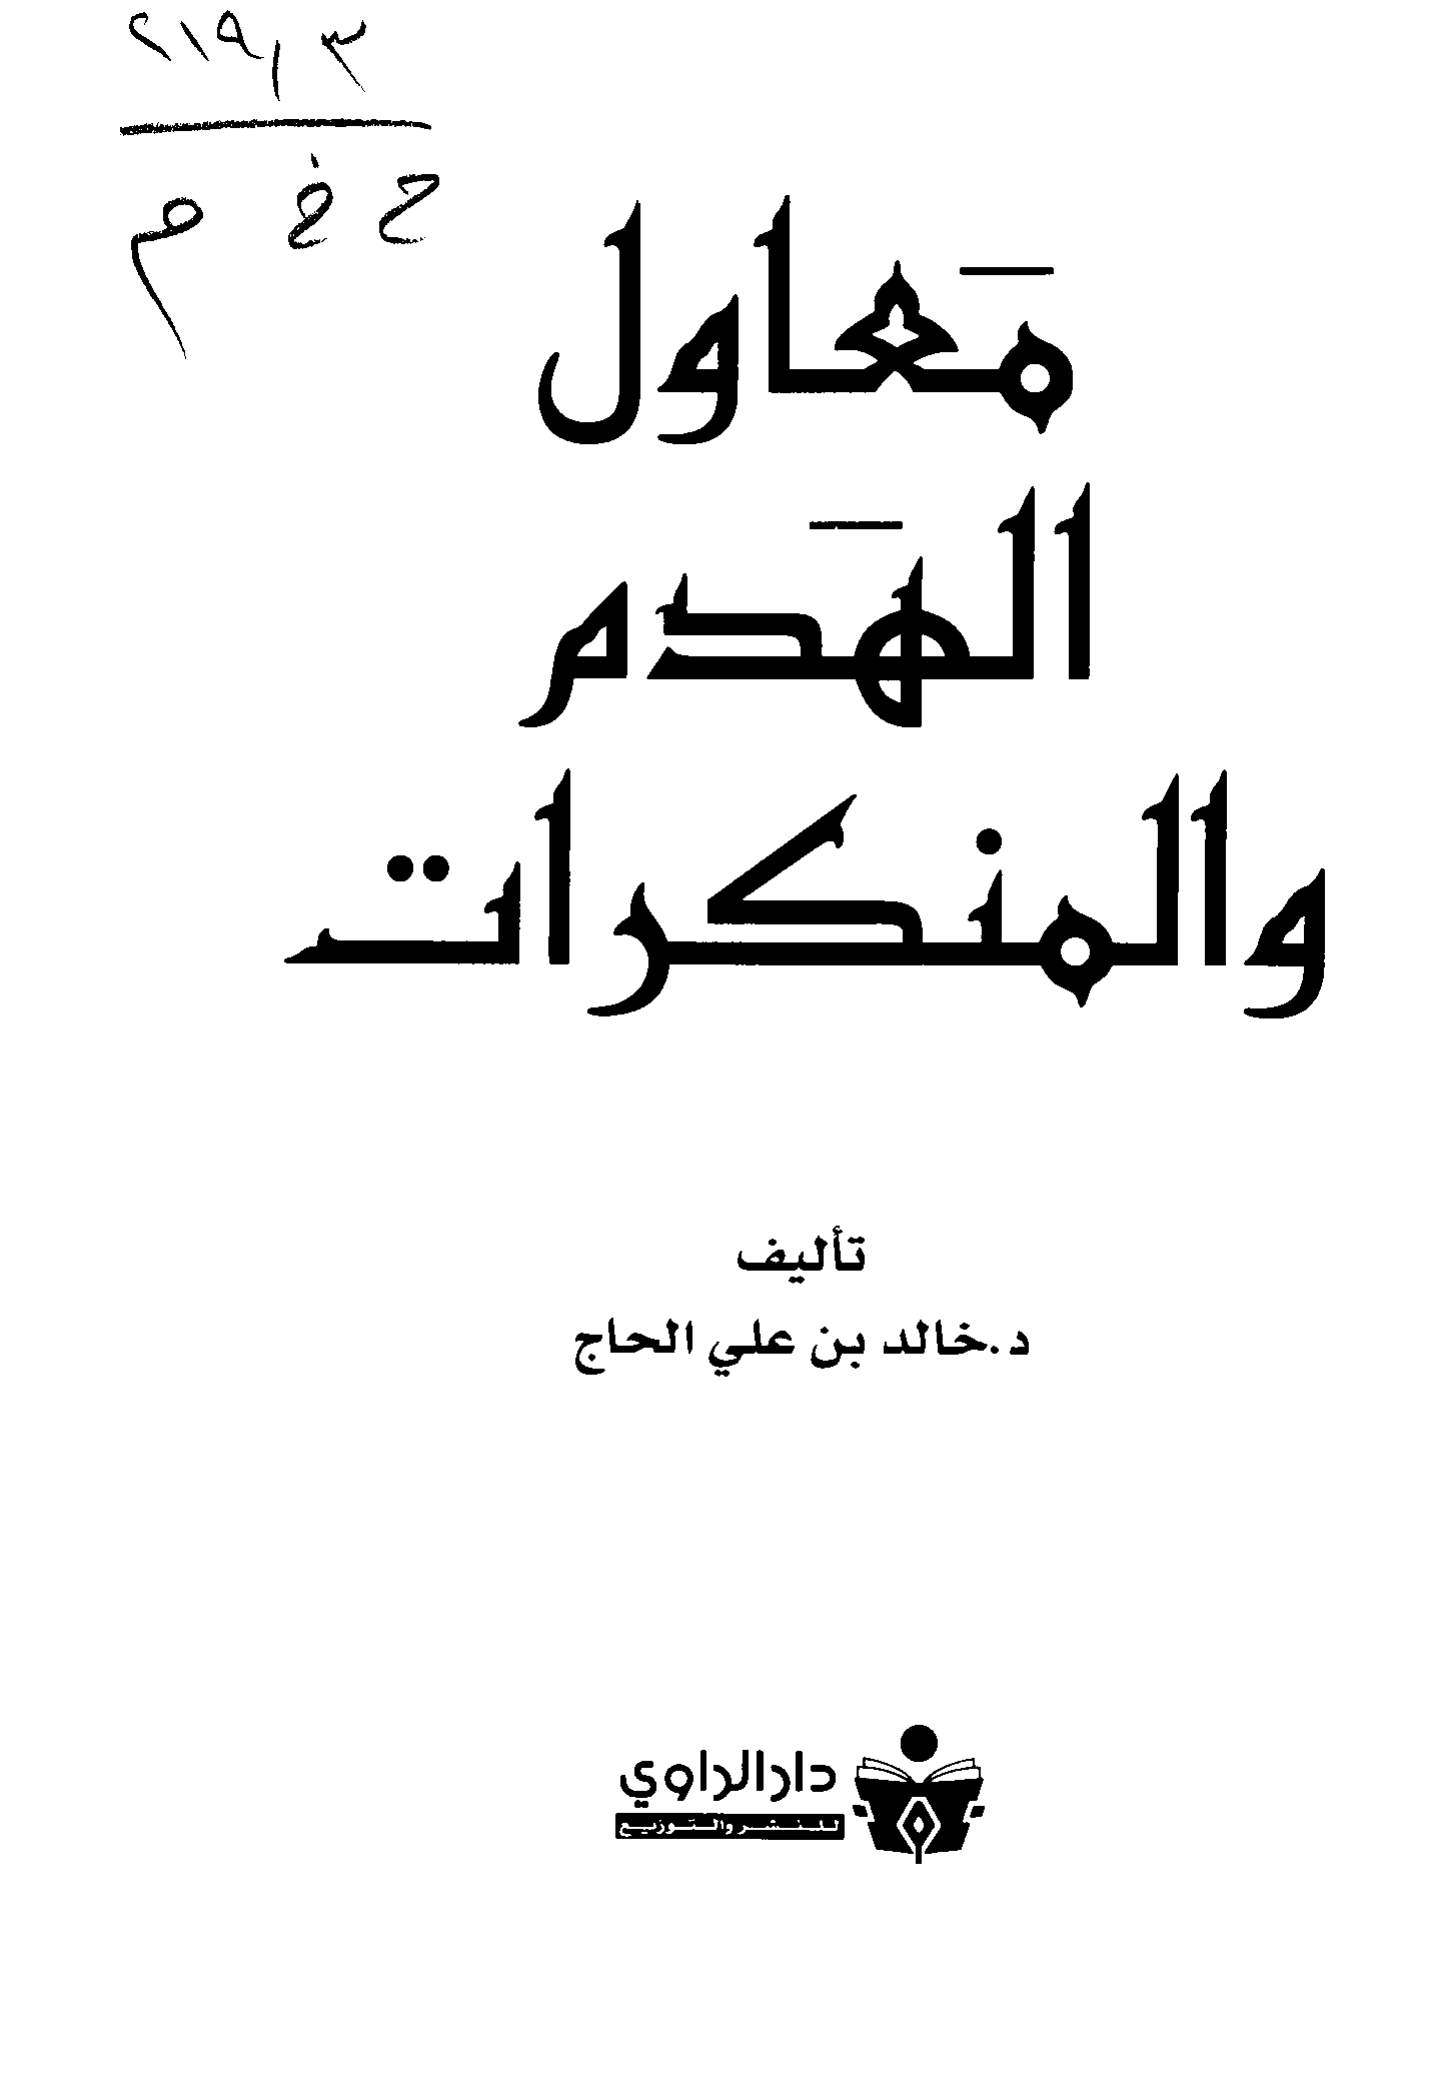 ٢١٩,٣
ح خ م
مَعاول
الهَدم
والمنكرات
تأليف
د.خالد بن علي الحاج
دار الراوي
للنشر والتوزيع